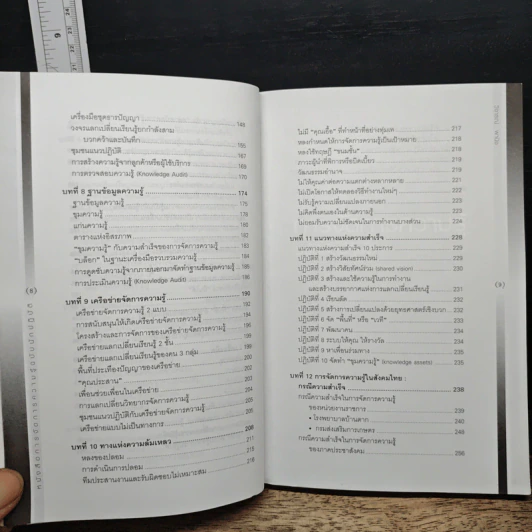 เครื่องมือชุดธารปัญญา 166
วงจรแลกเปลี่ยนเรียนรู้ยกกำลังสาม
บวกคว้าและบันทึก 165
ชุมชนแนวปฏิบัติ 166
การสร้างความรู้จากลูกค้าหรือผู้ใช้บริการ 169
การตรวจสอบความรู้ (Knowledge Audit) 170
บทที่ 8 ฐานข้อมูลความรู้ 174
ฐานข้อมูลความรู้ 175
ขุมความรู้ 176
แก่นความรู้ 180
ตารางแห่งอิสรภาพ
"ขุมความรู้" กับความสำเร็จของการจัดการความรู้ 183
"บล็อก" ในฐานะเครื่องมือรวบรวมความรู้
การดูดซับความรู้จากภายนอกมาจัดทำฐานข้อมูลความรู้ 185
การประเมินความรู้ (Knowledge Audit) 186
บทที่ 9 เครือข่ายจัดการความรู้ 190
เครือข่ายจัดการความรู้ 2 แบบ
การสนับสนุนให้เกิดเครือข่ายจัดการความรู้
โครงสร้างและการจัดการของเครือข่ายจัดการความรู้
เครือข่ายแลกเปลี่ยนเรียนรู้ 2 ชั้น
เครือข่ายแลกเปลี่ยนเรียนรู้ของคน 3 กลุ่ม
พื้นที่ประเทืองปัญญาของเครือข่าย
"คุณประสาน" 202
เพื่อนช่วยเพื่อนในเครือข่าย 204
การแลกเปลี่ยนวิทยากรจัดการความรู้
ชุมชนแนวปฏิบัติกับเครือข่ายจัดการความรู้ 205
เครือข่ายแบบไม่เป็นทางการ
บทที่ 10 ทางแห่งความล้มเหลว 208
หลงของปลอม 211
การดำเนินการปลอม 215
ทีมประสานงานและรับผิดชอบไม่เหมาะสม 216
ไม่มี "คุณเอื้อ" ที่ทำหน้าที่อย่างทุ่มเท 217
หลงกำหนดให้การจัดการความรู้เป็นเป้าหมาย 218
หลงใช้ทฤษฎี "ขนมชั้น" 219
ภาวะผู้นำที่พิการหรือบิดเบี้ยว 220
วัฒนธรรมอำนาจ 221
ไม่ให้คุณค่าต่อความแตกต่างหลากหลาย 221
ไม่เปิดโอกาสให้ทดลองวิธีทำงานใหม่ๆ 222
ไม่รับรู้ความเปลี่ยนแปลงภายนอก 223
ไม่คิดพึ่งตนเองในด้านความรู้ 223
ไม่ยอมรับความไม่ชัดเจนในการทำงานบางส่วน 224
บทที่ 11 แนวทางแห่งความสำเร็จ 228
แนวทางแห่งความสำเร็จ 10 ประการ
ปฏิบัติที่ 1 สร้างวัฒนธรรมใหม่
ปฏิบัติที่ 2 สร้างวิสัยทัศน์ร่วม (shared vision)
ปฏิบัติที่ 3 สร้างและใช้ความรู้ในการทำงาน
และสร้างบรรยากาศแห่งการแลกเปลี่ยนเรียนรู้
ปฏิบัติที่ 4 เรียนลัด
ปฏิบัติที่ 5 สร้างการเปลี่ยนแปลงด้วยยุทธศาสตร์เชิงบวก
ปฏิบัติที่ 6 จัด "พื้นที่" หรือ "เวที"
ปฏิบัติที่ 7 พัฒนาคน
ปฏิบัติที่ 8 ระบบให้คุณ ให้รางวัล
ปฏิบัติที่ 9 หาเพื่อนร่วมทาง
ปฏิบัติที่ 10 จัดทำ "ขุมความรู้" (knowledge assets)
บทที่ 12 การจัดการความรู้ในสังคมไทย :
กรณีความสำเร็จ 238
กรณีความสำเร็จในการจัดการความรู้
ของหน่วยงานราชการ 239
• โรงพยาบาลบ้านตาก 240
• กรมส่งเสริมการเกษตร 248
กรณีความสำเร็จในการจัดการความรู้
ของภาคประชาสังคม 256